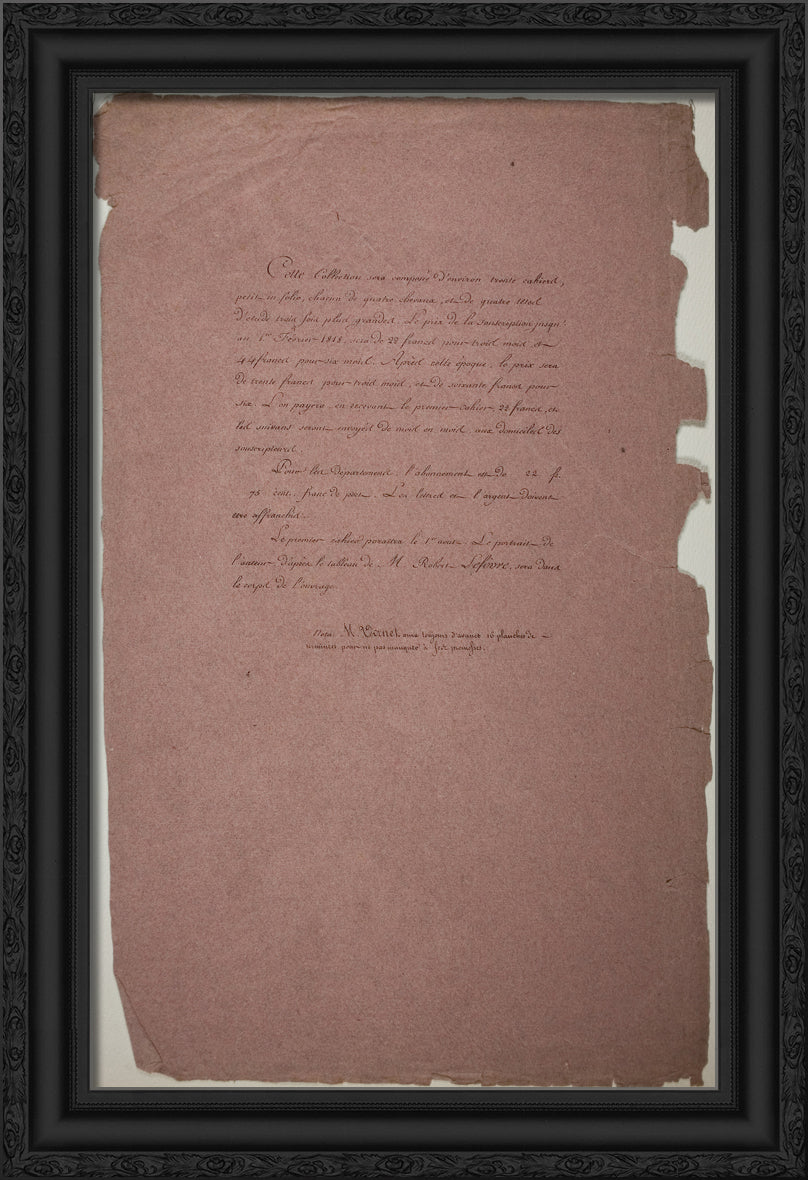 Cette Collection sera composée d'environ trente cahiers,
petit in folio, chacun de quatre chevaux, et de quatre têtes
d'étude trois fois plus grandes. Le prix de la Souscription jusqu'
au 1er Février 1818, sera de 22 francs pour trois mois et
44 francs pour six mois. Après cette époque, le prix sera
de trente francs pour trois mois, et de soixante francs pour
six. L'on payera en recevant le premier cahier, 22 francs, et
les suivans seront envoyés de mois en mois, aux domiciles des
souscripteurs.
Pour les Départemens, l'abonnement est de 22 f.
75 cent. franc de port. Les lettres et l'argent doivent
être affranchis.
Le premier cahier paraîtra le 1er août. Le portrait de
l'auteur d'après le tableau de M. Robert Lefèvre, sera dans
le corps de l'ouvrage.
Nota. M. Vernet aura toujours d'avance 16 planches de
terminées pour ne pas manquer à ses promesses.